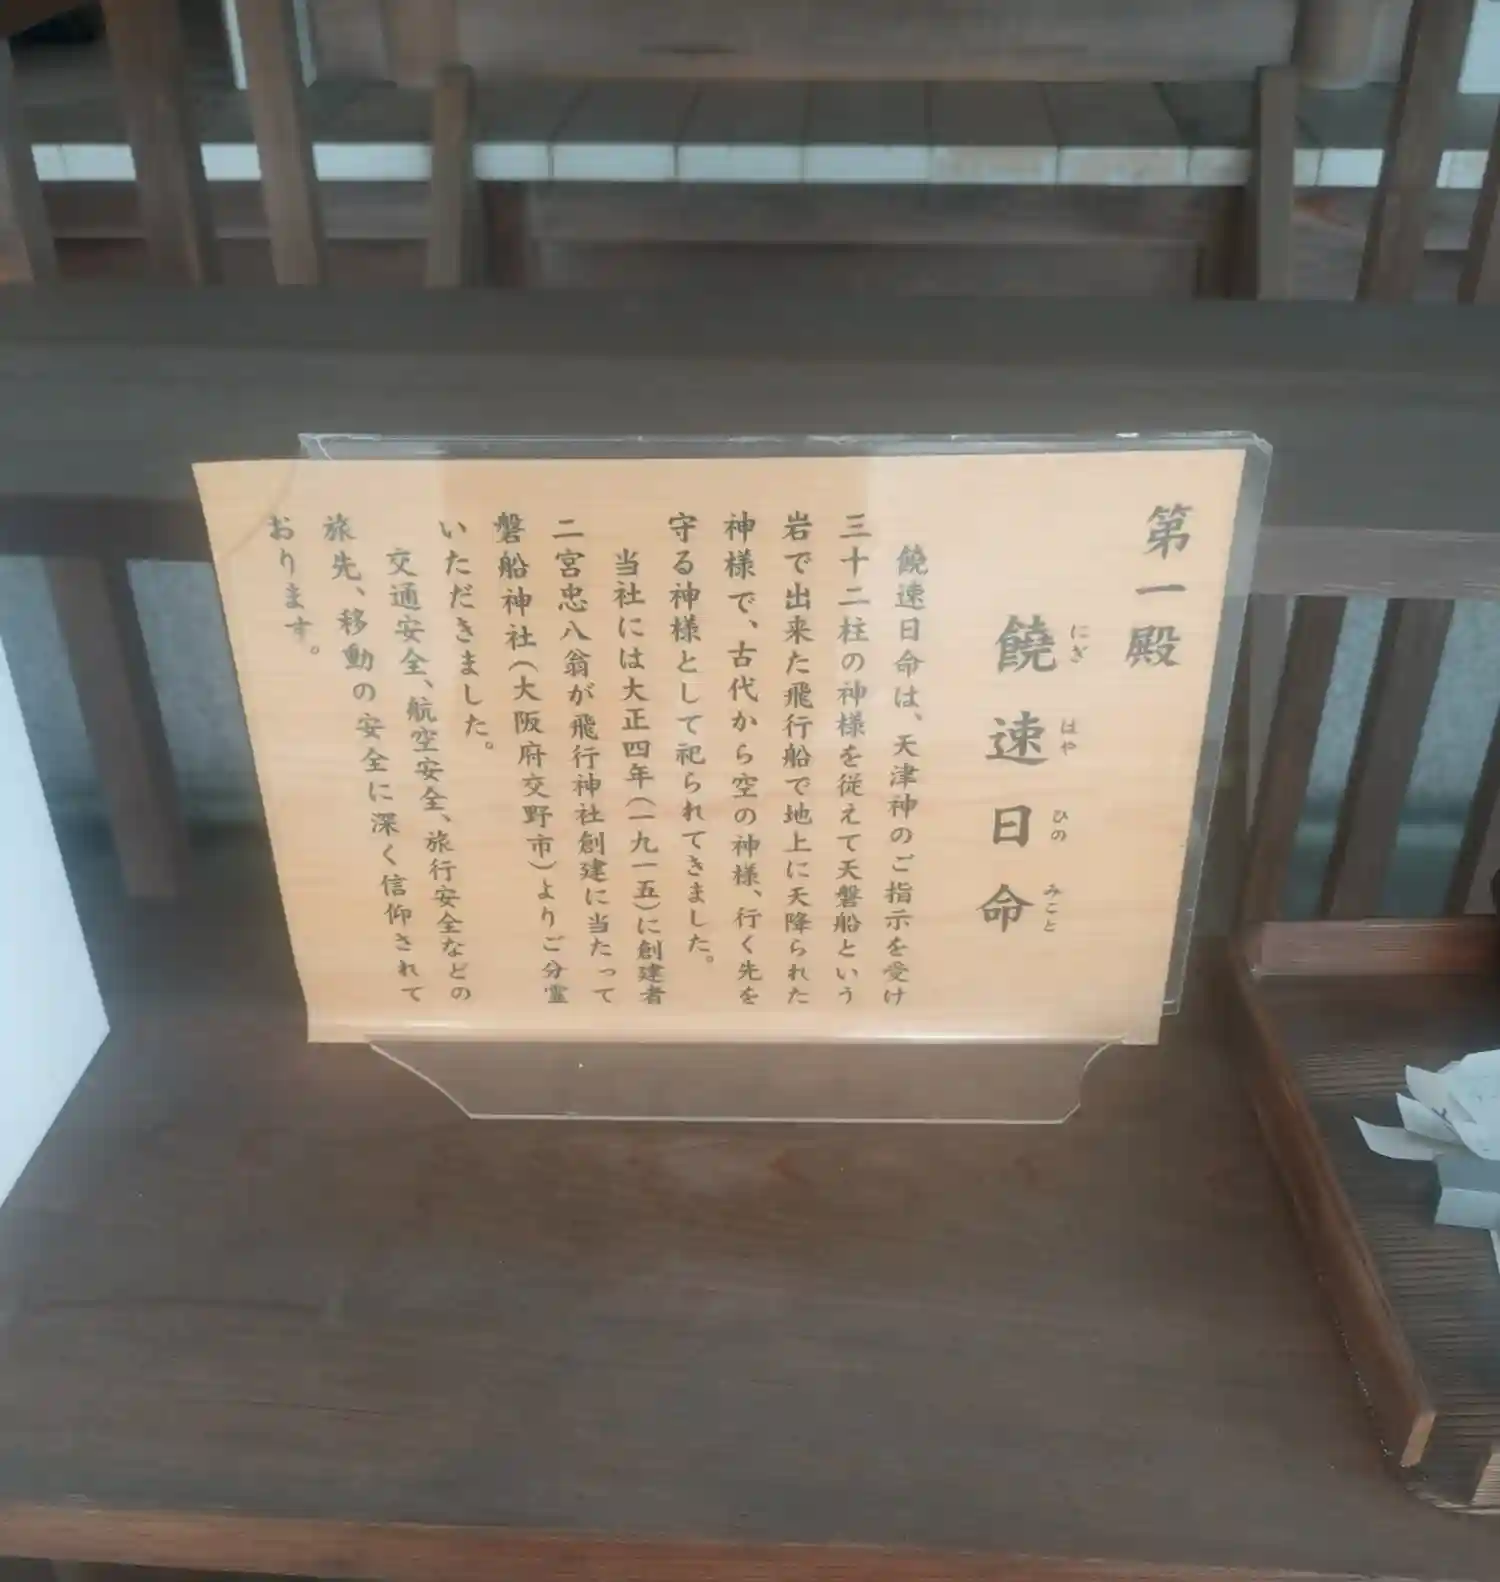 第一殿
饒速日命
にぎ はや ひの みこと
饒速日命は、天津神のご指示を受け
三十二柱の神様を従えて天磐船という
岩で出来た飛行船で地上に天降られた
神様で、古代から空の神様、行く先を
守る神様として祀られてきました。
当社には大正四年(一九一五)に創建者
二宮忠八翁が飛行神社創建に当たって
磐船神社(大阪府交野市)よりご分霊
いただきました。
交通安全、航空安全、旅行安全などの
旅先、移動の安全に深く信仰されて
おります。